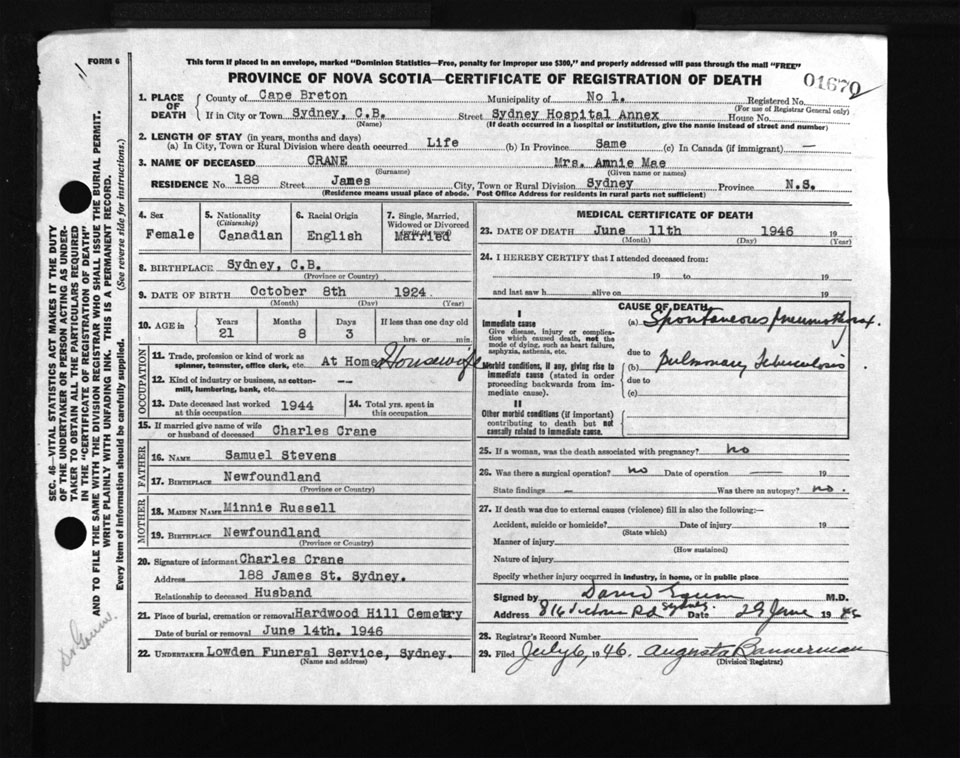 FORM 6
This form if placed in an envelope, marked "Dominion Statistics—Free, penalty for improper use $300," and properly addressed will pass through the mail "FREE"
PROVINCE OF NOVA SCOTIA—CERTIFICATE OF REGISTRATION OF DEATH
01670
1. PLACE OF DEATH County of Cape Breton Municipality of No 1. Registered No.
(For use of Registrar General only)
If in City or Town Sydney, C.B. Street Sydney Hospital Annex House No.
(Name) (If death occurred in a hospital or institution, give the name instead of street and number)
2. LENGTH OF STAY (in years, months and days)
(a) In City, Town or Rural Division where death occurred Life (b) In Province Same (c) In Canada (if immigrant) —
3. NAME OF DECEASED CRANE Mrs. Annie Mae
(Surname) (Given name or names)
RESIDENCE No. 188 Street James City, Town or Rural Division Sydney Province N.S.
(Residence means usual place of abode. Post Office Address for residents in rural parts not sufficient)
4. Sex Female
5. Nationality (Citizenship) Canadian
6. Racial Origin English
7. Single, Married, Widowed or Divorced Married
8. BIRTHPLACE Sydney, C.B.
(Province or Country)
9. DATE OF BIRTH October 8th 1924
(Month) (Day) (Year)
10. AGE in Years 21 Months 8 Days 3 If less than one day old hrs. or min.
OCCUPATION
11. Trade, profession or kind of work as spinner, teamster, office clerk, etc. At Home Housewife
12. Kind of industry or business, as cotton-mill, lumbering, bank, etc. --
13. Date deceased last worked at this occupation 1944
14. Total yrs. spent in this occupation
15. If married give name of wife or husband of deceased Charles Crane
FATHER
16. NAME Samuel Stevens
17. BIRTHPLACE Newfoundland
(Province or Country)
MOTHER
18. MAIDEN NAME Minnie Russell
19. BIRTHPLACE Newfoundland
(Province or Country)
20. Signature of informant Charles Crane
Address 188 James St. Sydney.
Relationship to deceased Husband
21. Place of burial, cremation or removal Hardwood Hill Cemetry
Date of burial or removal June 14th. 1946
22. UNDERTAKER Lowden Funeral Service, Sydney.
(Name and address)
MEDICAL CERTIFICATE OF DEATH
23. DATE OF DEATH June 11th 1946 19
(Month) (Day) (Year)
24. I HEREBY CERTIFY that I attended deceased from:
19 to 19
and last saw h alive on 19
CAUSE OF DEATH
I
Immediate cause
Give disease, injury or complication which caused death, not the mode of dying, such as heart failure, asphyxia, asthenia, etc.
(a) Spontaneous pneumothorax.
due to
Morbid conditions, if any, giving rise to immediate cause (stated in order proceeding backwards from immediate cause).
(b) Pulmonary Tuberculosis
due to
(c)
II
Other morbid conditions (if important) contributing to death but not causally related to immediate cause.
25. If a woman, was the death associated with pregnancy? no
26. Was there a surgical operation? no Date of operation — 19
State findings — Was there an autopsy? no.
27. If death was due to external causes (violence) fill in also the following:—
Accident, suicide or homicide? Date of injury 19
(State which)
Manner of injury
(How sustained)
Nature of injury
Specify whether injury occurred in industry, in home, or in public place
Signed by David M.D.
Address 816 Rd Sydney. Date 29 June 19
28. Registrar's Record Number
29. Filed July 6, 1946. Augusta Bannerman
(Division Registrar)
SEC. 46—VITAL STATISTICS ACT MAKES IT THE DUTY
OF THE UNDERTAKER OR PERSON ACTING AS UNDER-
TAKER TO OBTAIN ALL THE PARTICULARS REQUIRED
IN THE "CERTIFICATE OF REGISTRATION OF DEATH"
AND TO FILE THE SAME WITH THE DIVISION REGISTRAR WHO SHALL ISSUE THE BURIAL PERMIT.
WRITE PLAINLY WITH UNFADING INK. THIS IS A PERMANENT RECORD.
Every item of information should be carefully supplied. (See reverse side for instructions.)